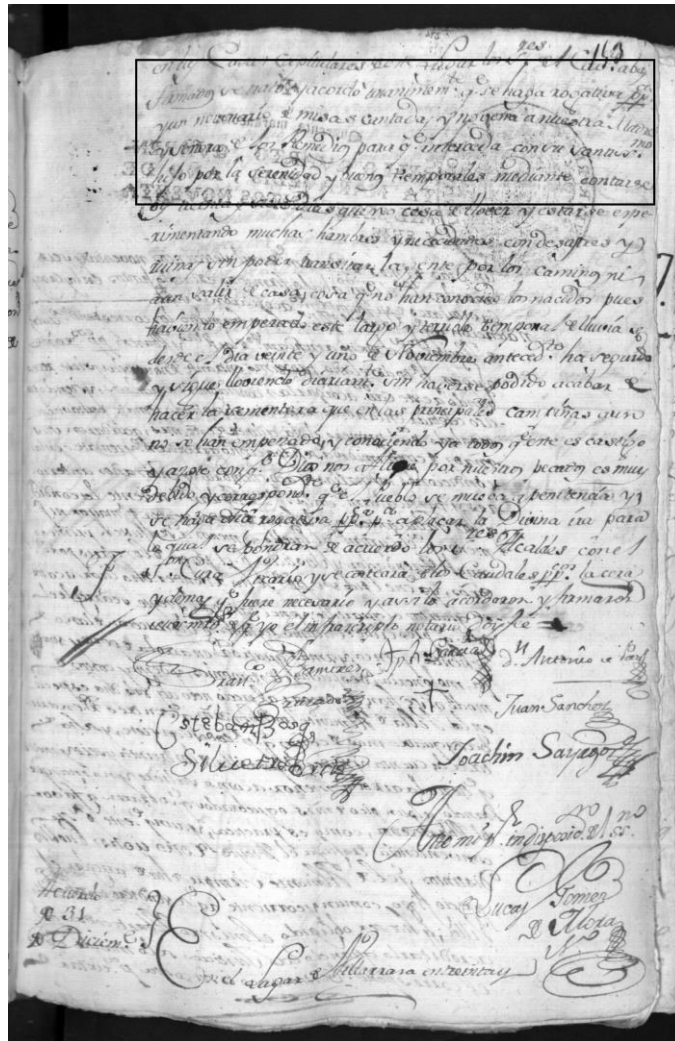 en las Casas Capitulares de este Lugar los S.res del Cav.do abajo 143
firmados se trato y acordó unanimem.te q.e se haga rogativa pp.ca
y un novenario de misas cantadas y nobena a nuestra Madre
y Señora de los Remedios para q.e interceda con su Santis.mo
hijo por la serenidad y buenos temporales mediante contarse
oy treinta y dias que no cesa de llover y estarse espe-
rimentando muchas hambres y necesidades con desastres y
ruina sin poder transitar la gente por los caminos ni
aun salir de casa, cosa q.e no han conocido los nacidos pues
haviendo empezado este largo y terrible temporal de lluvia
desde el dia veinte y uno de Noviembre anteced.te ha seguido
y sigue lloviendo diariam.te sin haverse podido acabar de
hacer la sementera que en las principales campiñas aun
no se han empezado, y conociendo ya todos q.e este es castigo
y azote con q.e Dios nos aflige por nuestros pecados es muy
debido y correspond.te q.e el Pueblo se mueba a penitencia y
se haga dha rogativa pp.ca p.a aplacar la Divina ira para
lo qual se pondran de acuerdo los S.res Alcaldes con el
S.or Cura Vicario y se costeará de los Caudales pp.cos la cera
y demas q.e fuere necesario y assi lo acordaron y firmaron
yo el infrascripto notario doy fe
Juan Fran.co Ximenez
Jph Garcia
d.n Antonio de
Jurado
Juan Sanchez
Esteban
Joachin Sayago
Silvestre
Ante mi p.r indisposic.on del no
ss.
Lucas Gomez
de Mora
N.o
Acuerdo
de 31
de Diciem.e
En el Lugar de Villarrasa en treinta y